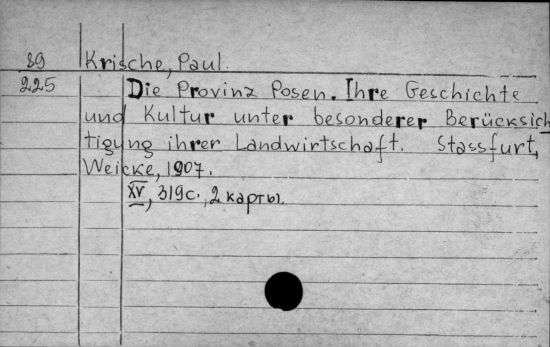 89 Krische, Paul.
225 Die Provinz Posen. Ihre Geschichte
und Kultur unter besonderer Berücksich
tigung ihrer Landwirtschaft. Stassfurt,
Weicke, 1907.
XV, 319с., 2 карты.